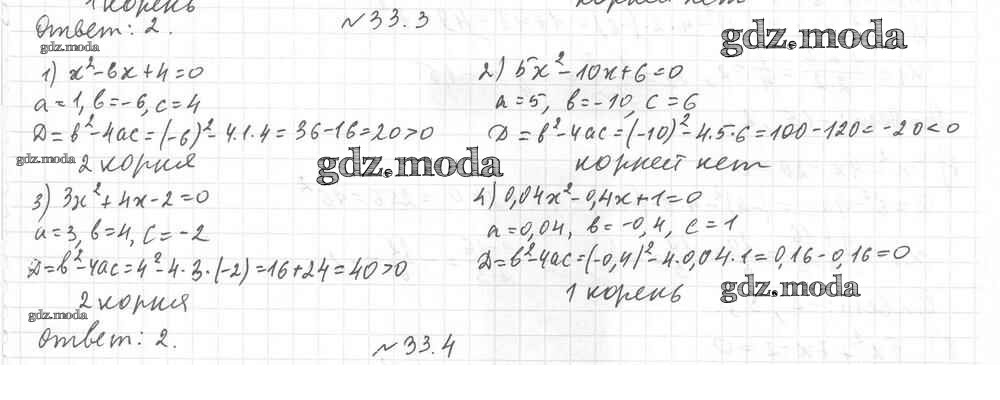 1 корень
корней нет
Ответ: 2.
№33.3
gdz.moda
gdz.moda
1) x²-6x+4=0
2) 5x²-10x+6=0
a=1, b=-6, c=4
a=5, b=-10, c=6
D=b²-4ac=(-6)²-4·1·4=36-16=20>0
D=b²-4ac=(-10)²-4·5·6=100-120=-20<0
gdz.moda
2 корня
gdz.moda
корней нет
3) 3x²+4x-2=0
4) 0,04x²-0,4x+1=0
a=3, b=4, c=-2
a=0,04, b=-0,4, c=1
D=b²-4ac=4²-4·3·(-2)=16+24=40>0
D=b²-4ac=(-0,4)²-4·0,04·1=0,16-0,16=0
2 корня
1 корень
gdz.moda
gdz.moda
Ответ: 2.
№33.4